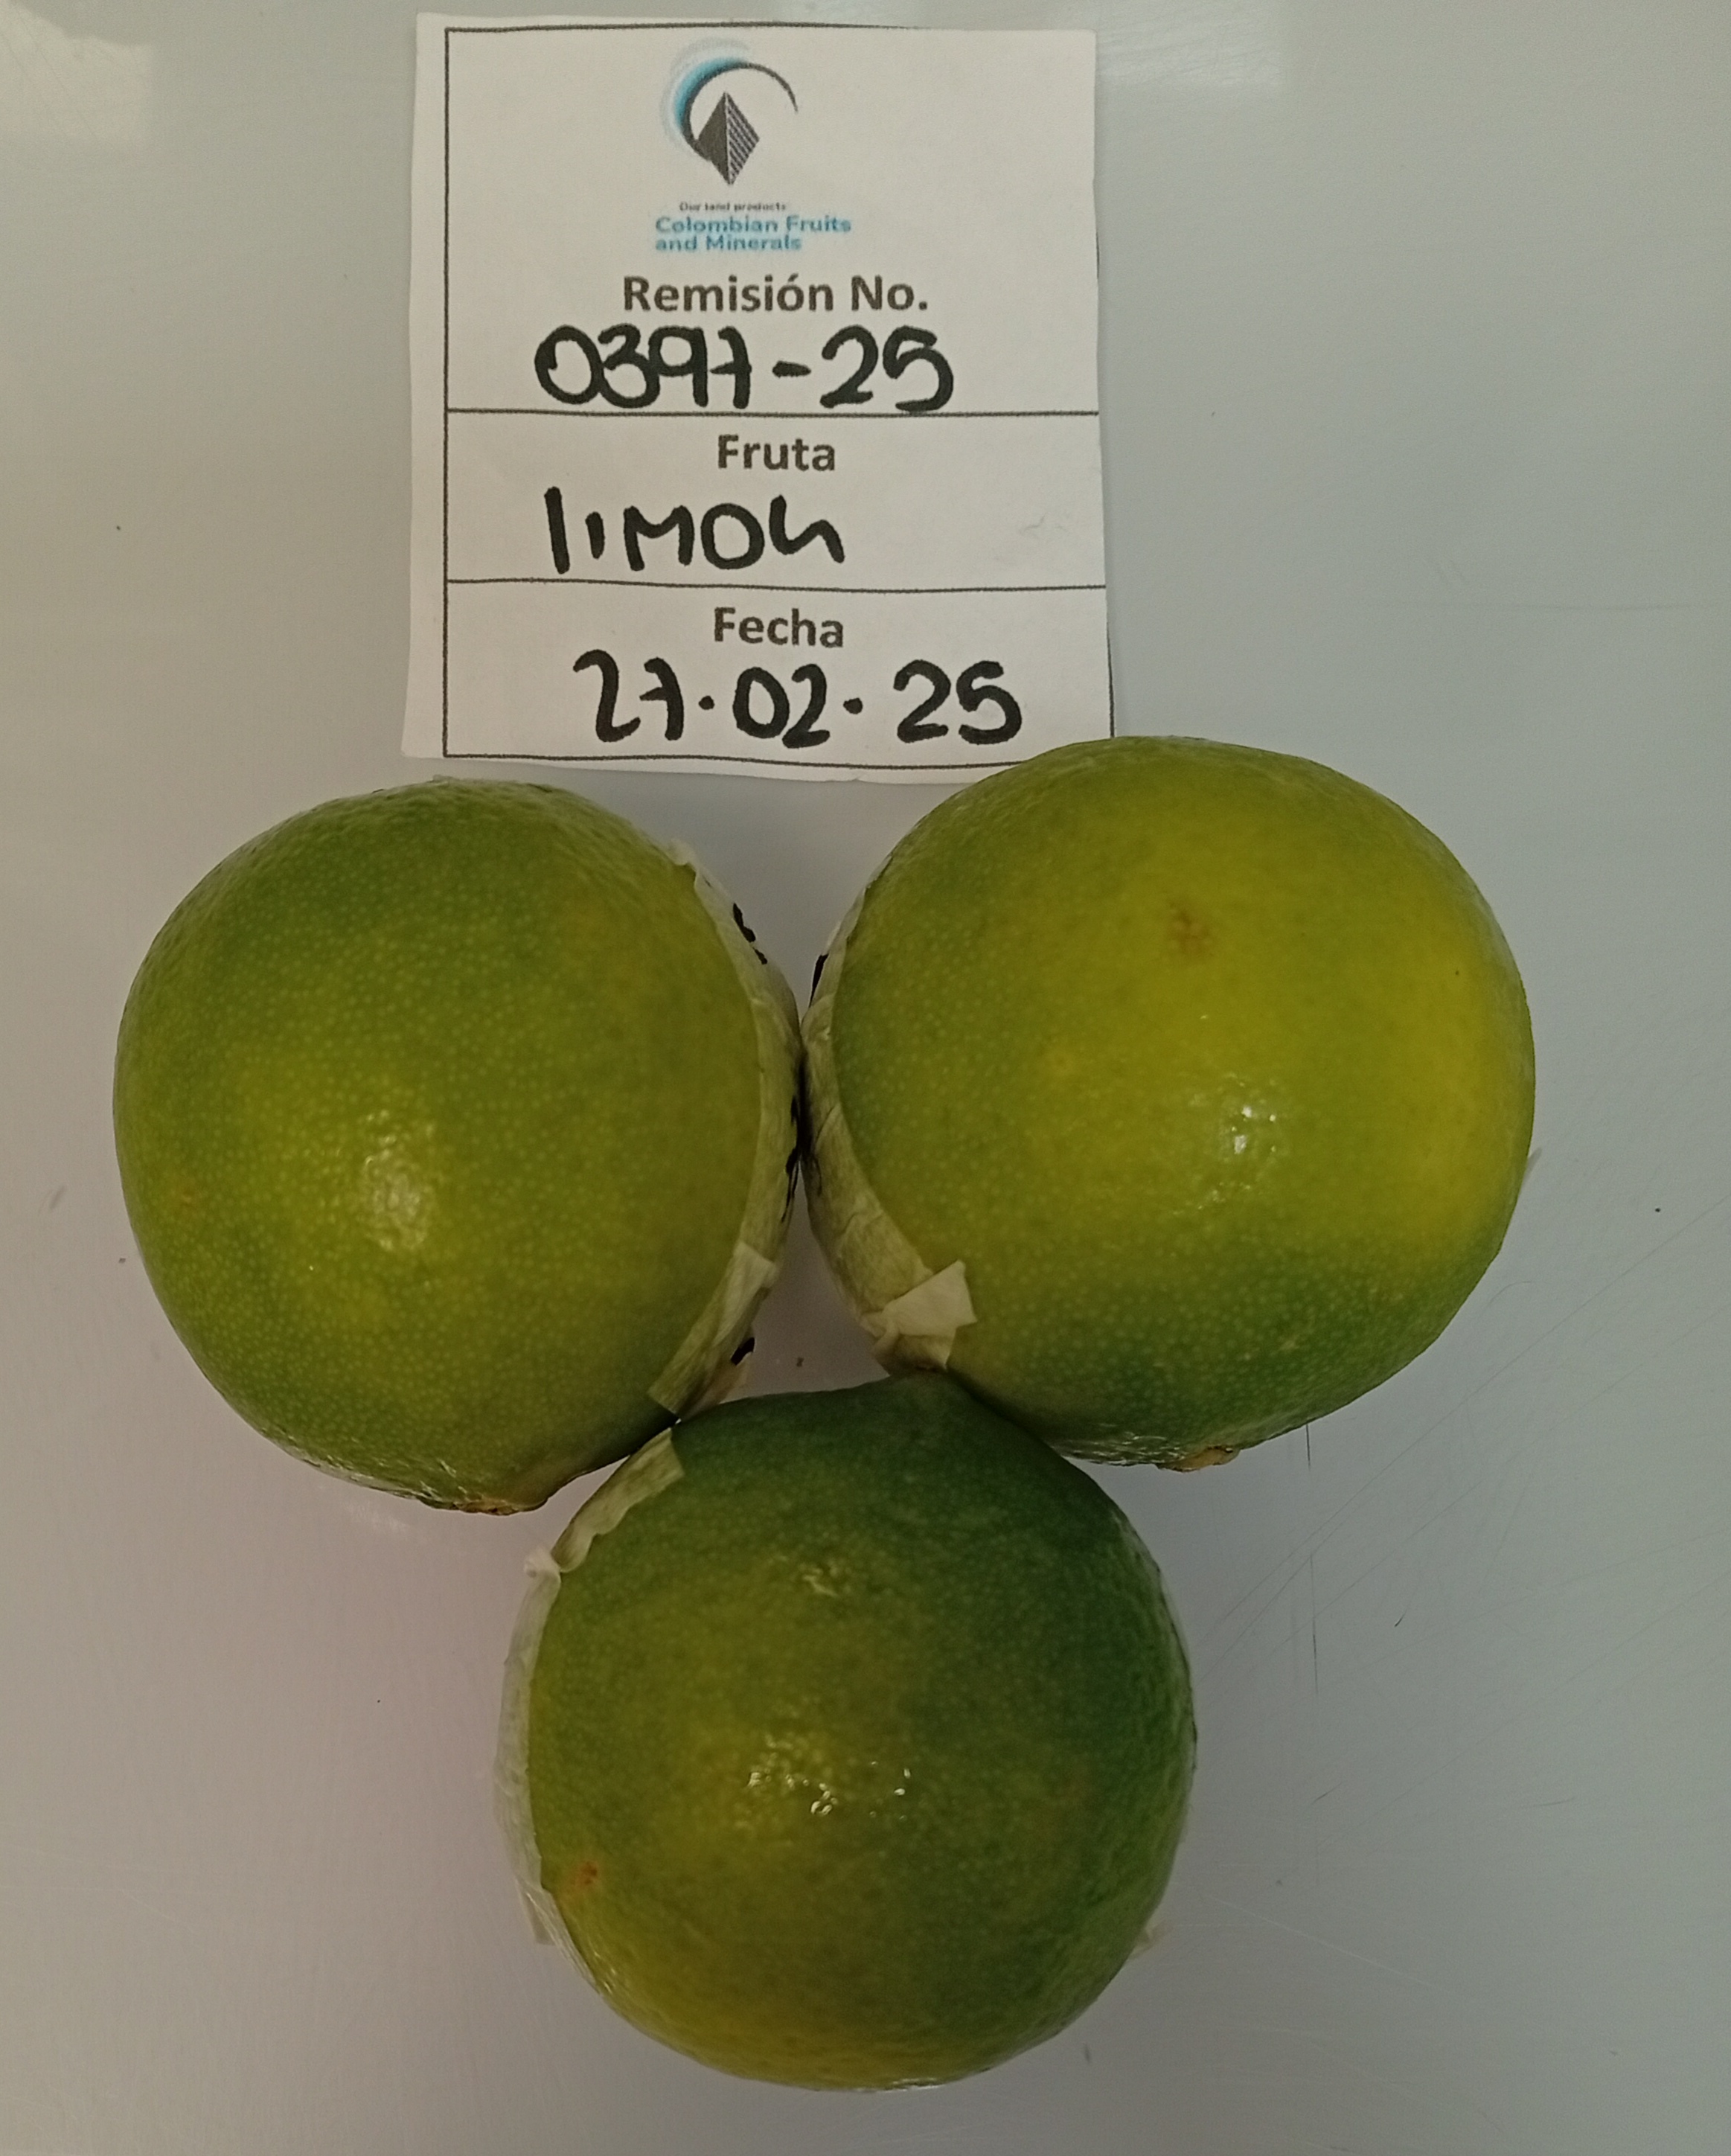 Our land products
Colombian Fruits
and Minerals
Remisión No.
0397-25
Fruta
limon
Fecha
27.02.25